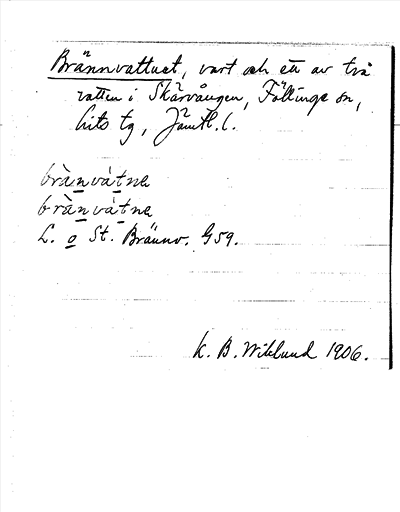 Brännvattnet, vart och ett av två
vatten i Skärvången, Föllinge sn,
Lits tg, Jämtl. l.
brànvàtnɐ
brànvátnɐ
L. o St. Brännv. G59.
K. B. Wiklund 1906.